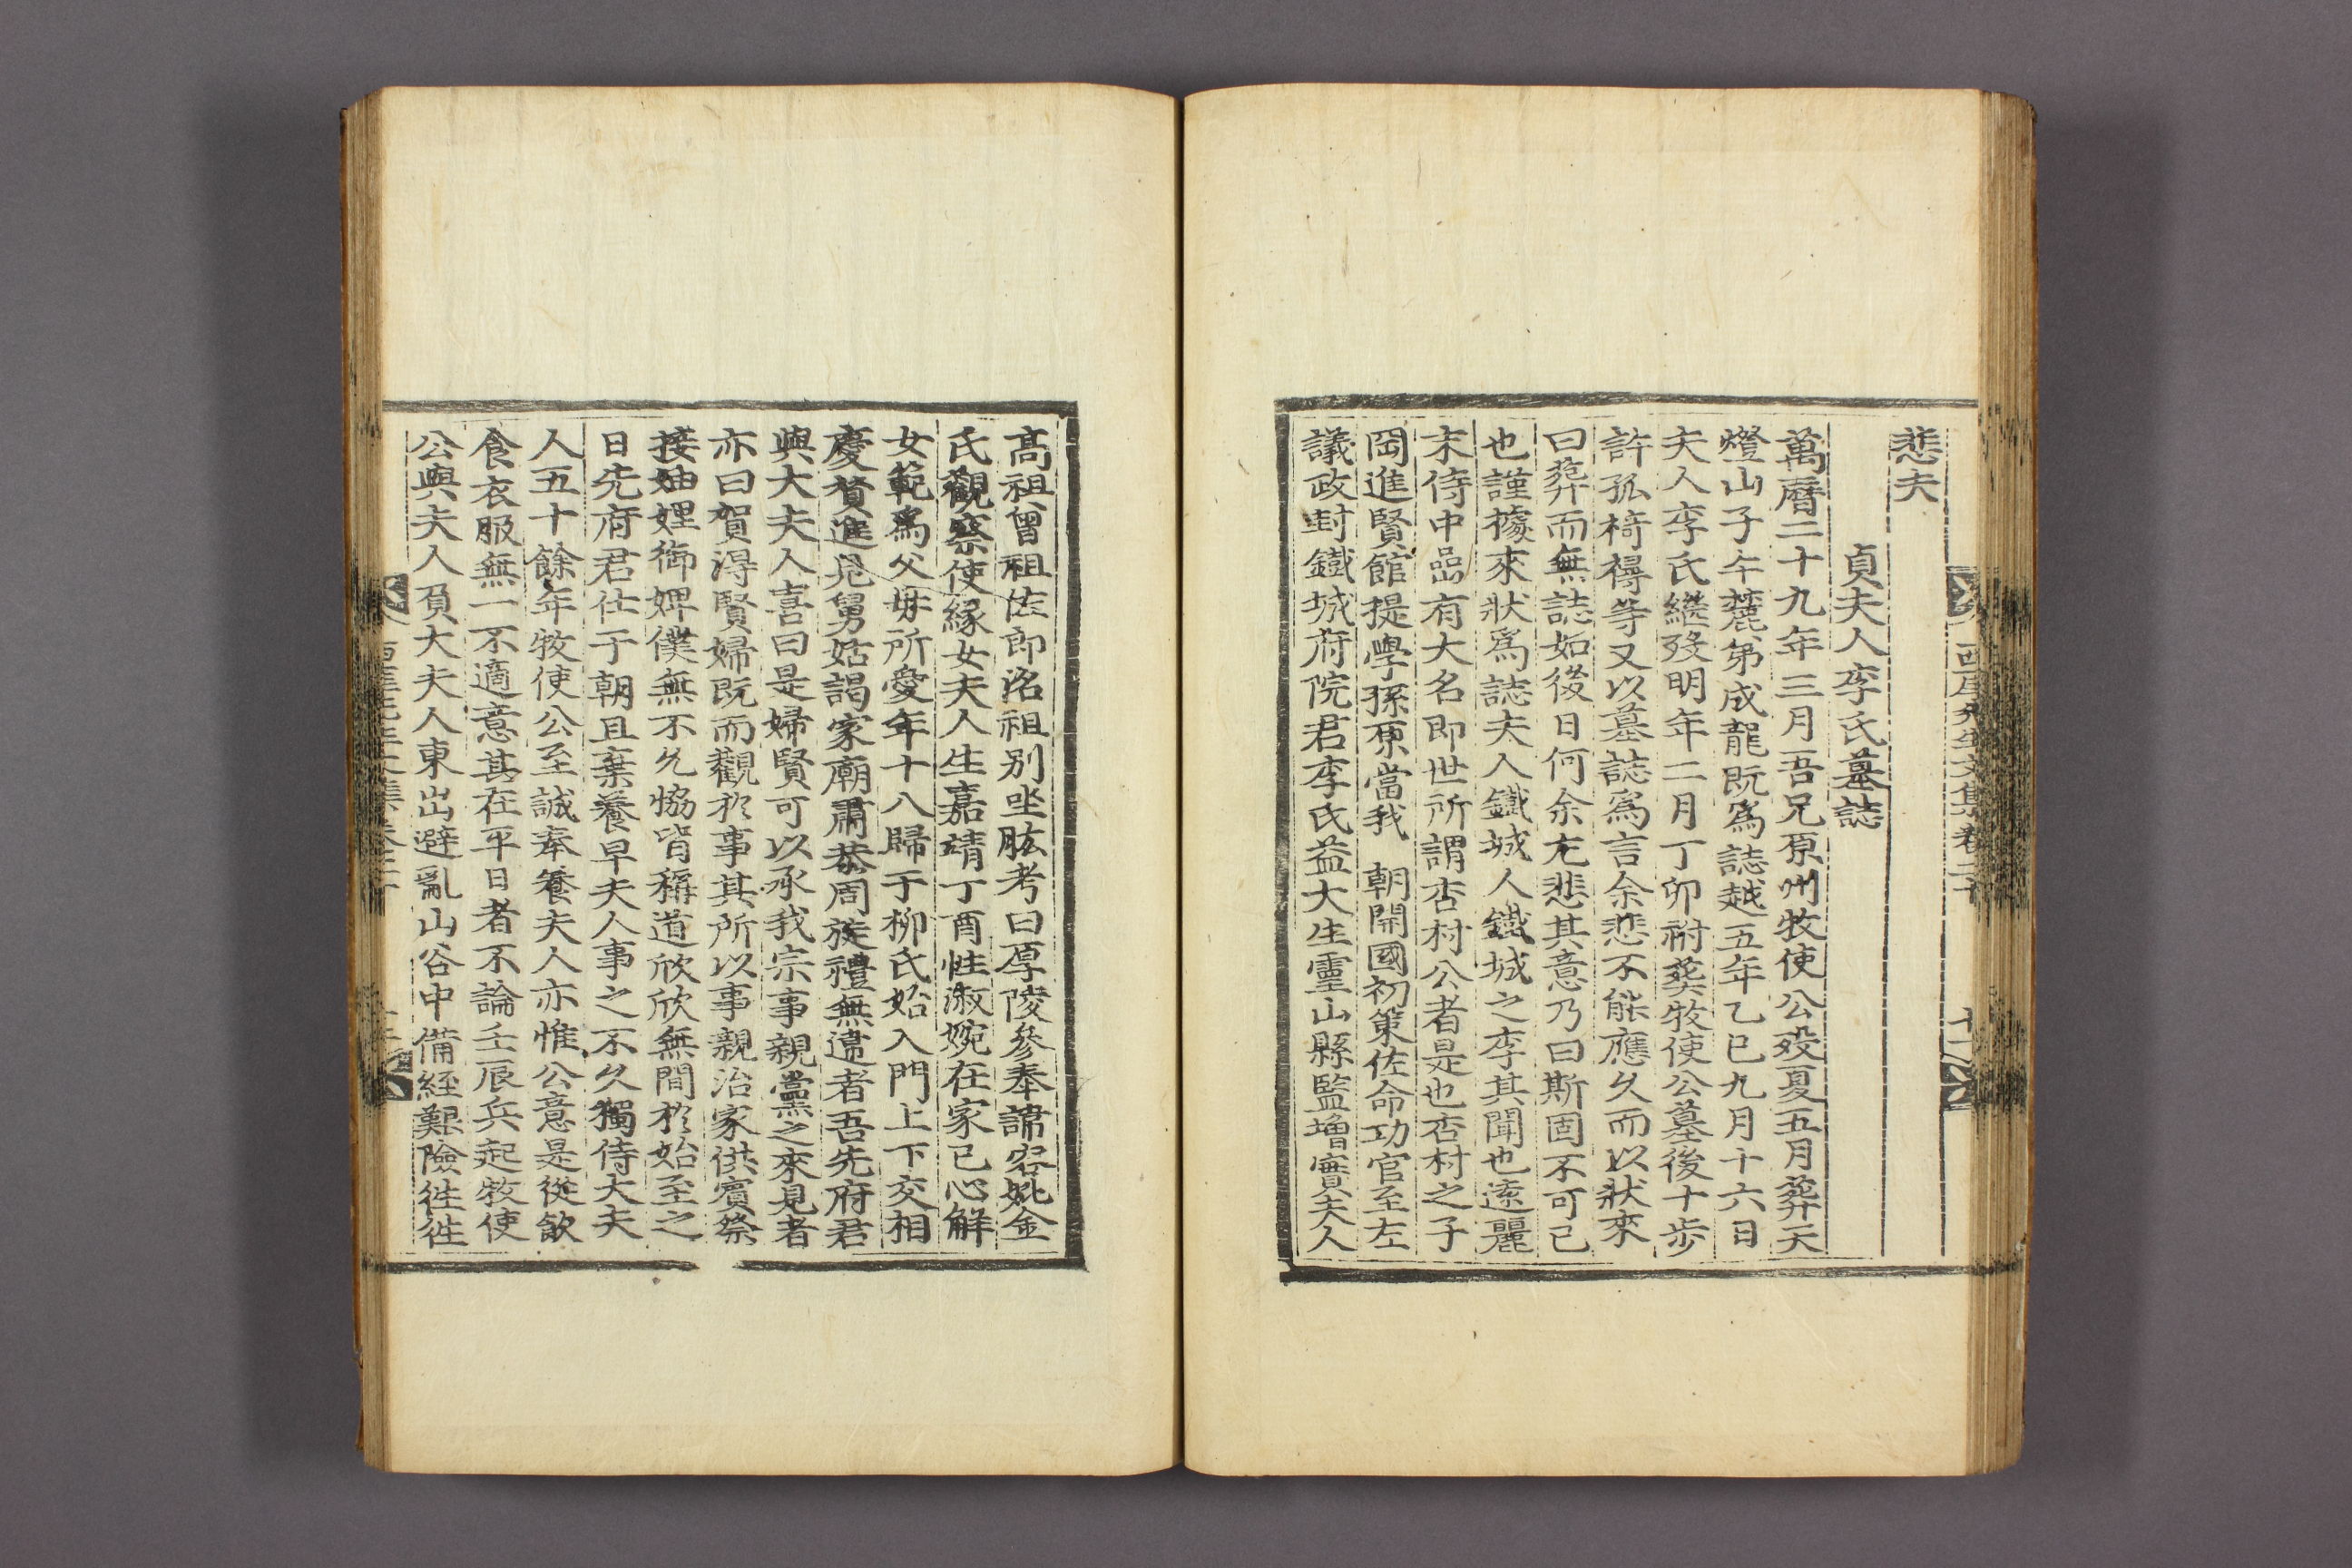 西厓先生文集卷二十
悲夫
貞夫人李氏墓誌
萬曆二十九年三月吾兄原州牧使公歿夏五月葬天
燈山子午麓弟成龍既爲誌越五年乙巳九月十六日
夫人李氏繼歿明年二月丁卯祔葬牧使公墓後十步
許孤𥛚等又以墓誌爲言余悲不能應久而以狀來
曰葬而無誌如後日何余尤悲其意乃曰斯固不可已
也謹據來狀爲誌夫人鐵城人鐵城之李其聞也遠麗
末侍中嵒有大名即世所謂杏村公者是也杏村之子
岡進賢館提學孫原當我 朝開國初策佐命功官至左
議政封鐵城府院君李氏益大生靈山縣監增寔夫人
高祖曾祖佐郎洺祖別坐肱考曰厚陵參奉諱容妣金
氏觀察使緣女夫人生嘉靖丁酉性淑婉在家已心解
女範爲父母所愛年十八歸于柳氏始入門上下交相
慶贊進見舅姑謁家廟肅恭周旋禮無違者吾先府君
與大夫人喜曰是婦賢可以承我宗事親黨之來見者
亦曰賀得賢婦既而觀於事其所以事親治家供賓祭
接妯娌御婢僕無不允恊皆稱道欣欣無間於始至之
日先府君仕于朝且棄養早夫人事之不久獨侍大夫
人五十餘年牧使公至誠奉養夫人亦惟公意是從飮
食衣服無一不適意其在平日者不論壬辰兵起牧使
公與夫人負大夫人東出避亂山谷中備經艱險徃徃